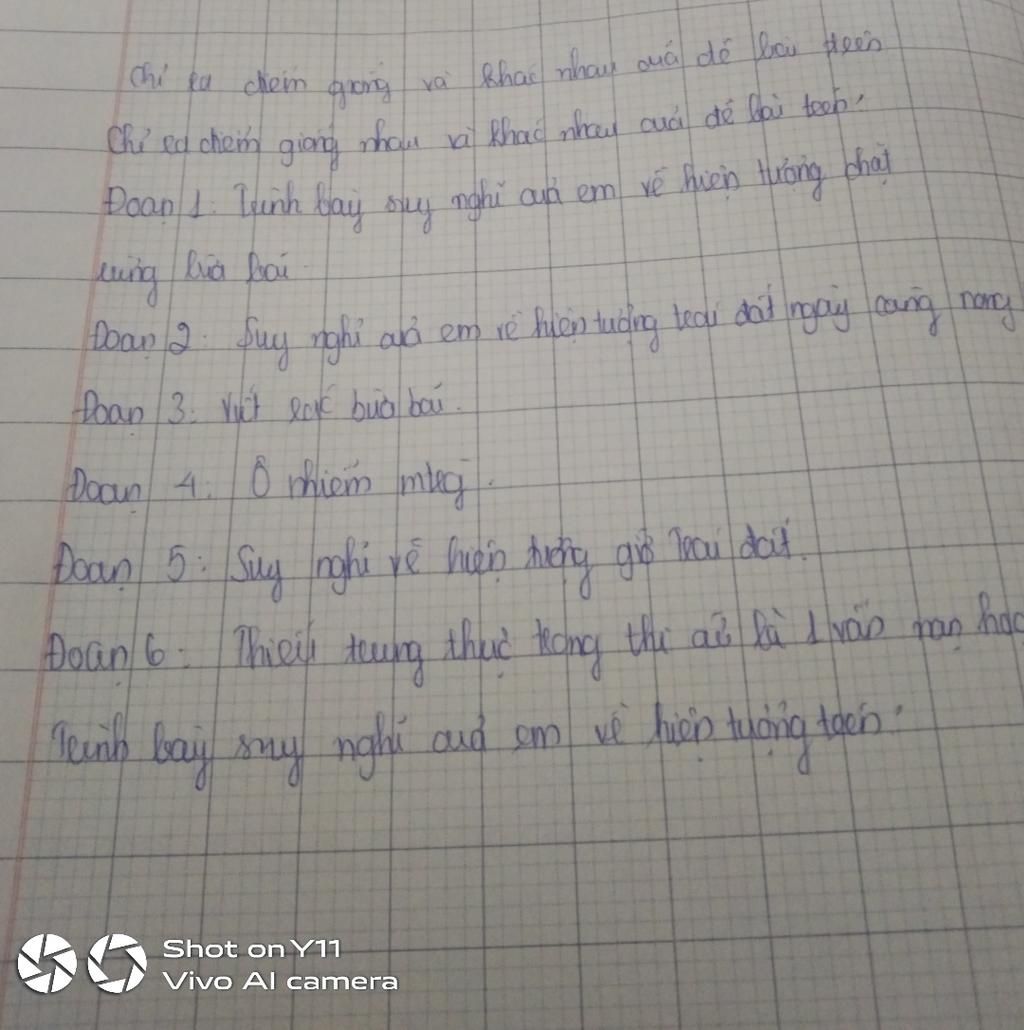 Chỉ ra điểm giống và khác nhau của đề bài trên
Chỉ ra điểm giống nhau và khác nhau của đề bài trên.
Đoạn 1: Trình bày suy nghĩ của em về hiện tượng chặt
rừng bừa bãi
Đoạn 2: Suy nghĩ của em về hiện tượng trái đất ngày càng nóng
Đoạn 3: Vứt rác bừa bãi.
Đoạn 4: Ô nhiễm mtrg.
Đoạn 5: Suy nghĩ về hiện tượng giờ trái đất.
Đoạn 6: Thiếu trung thực trong thi cử là 1 vấn nạn học
Trình bày suy nghĩ của em về hiện tượng trên.
Shot on Y11
Vivo AI camera